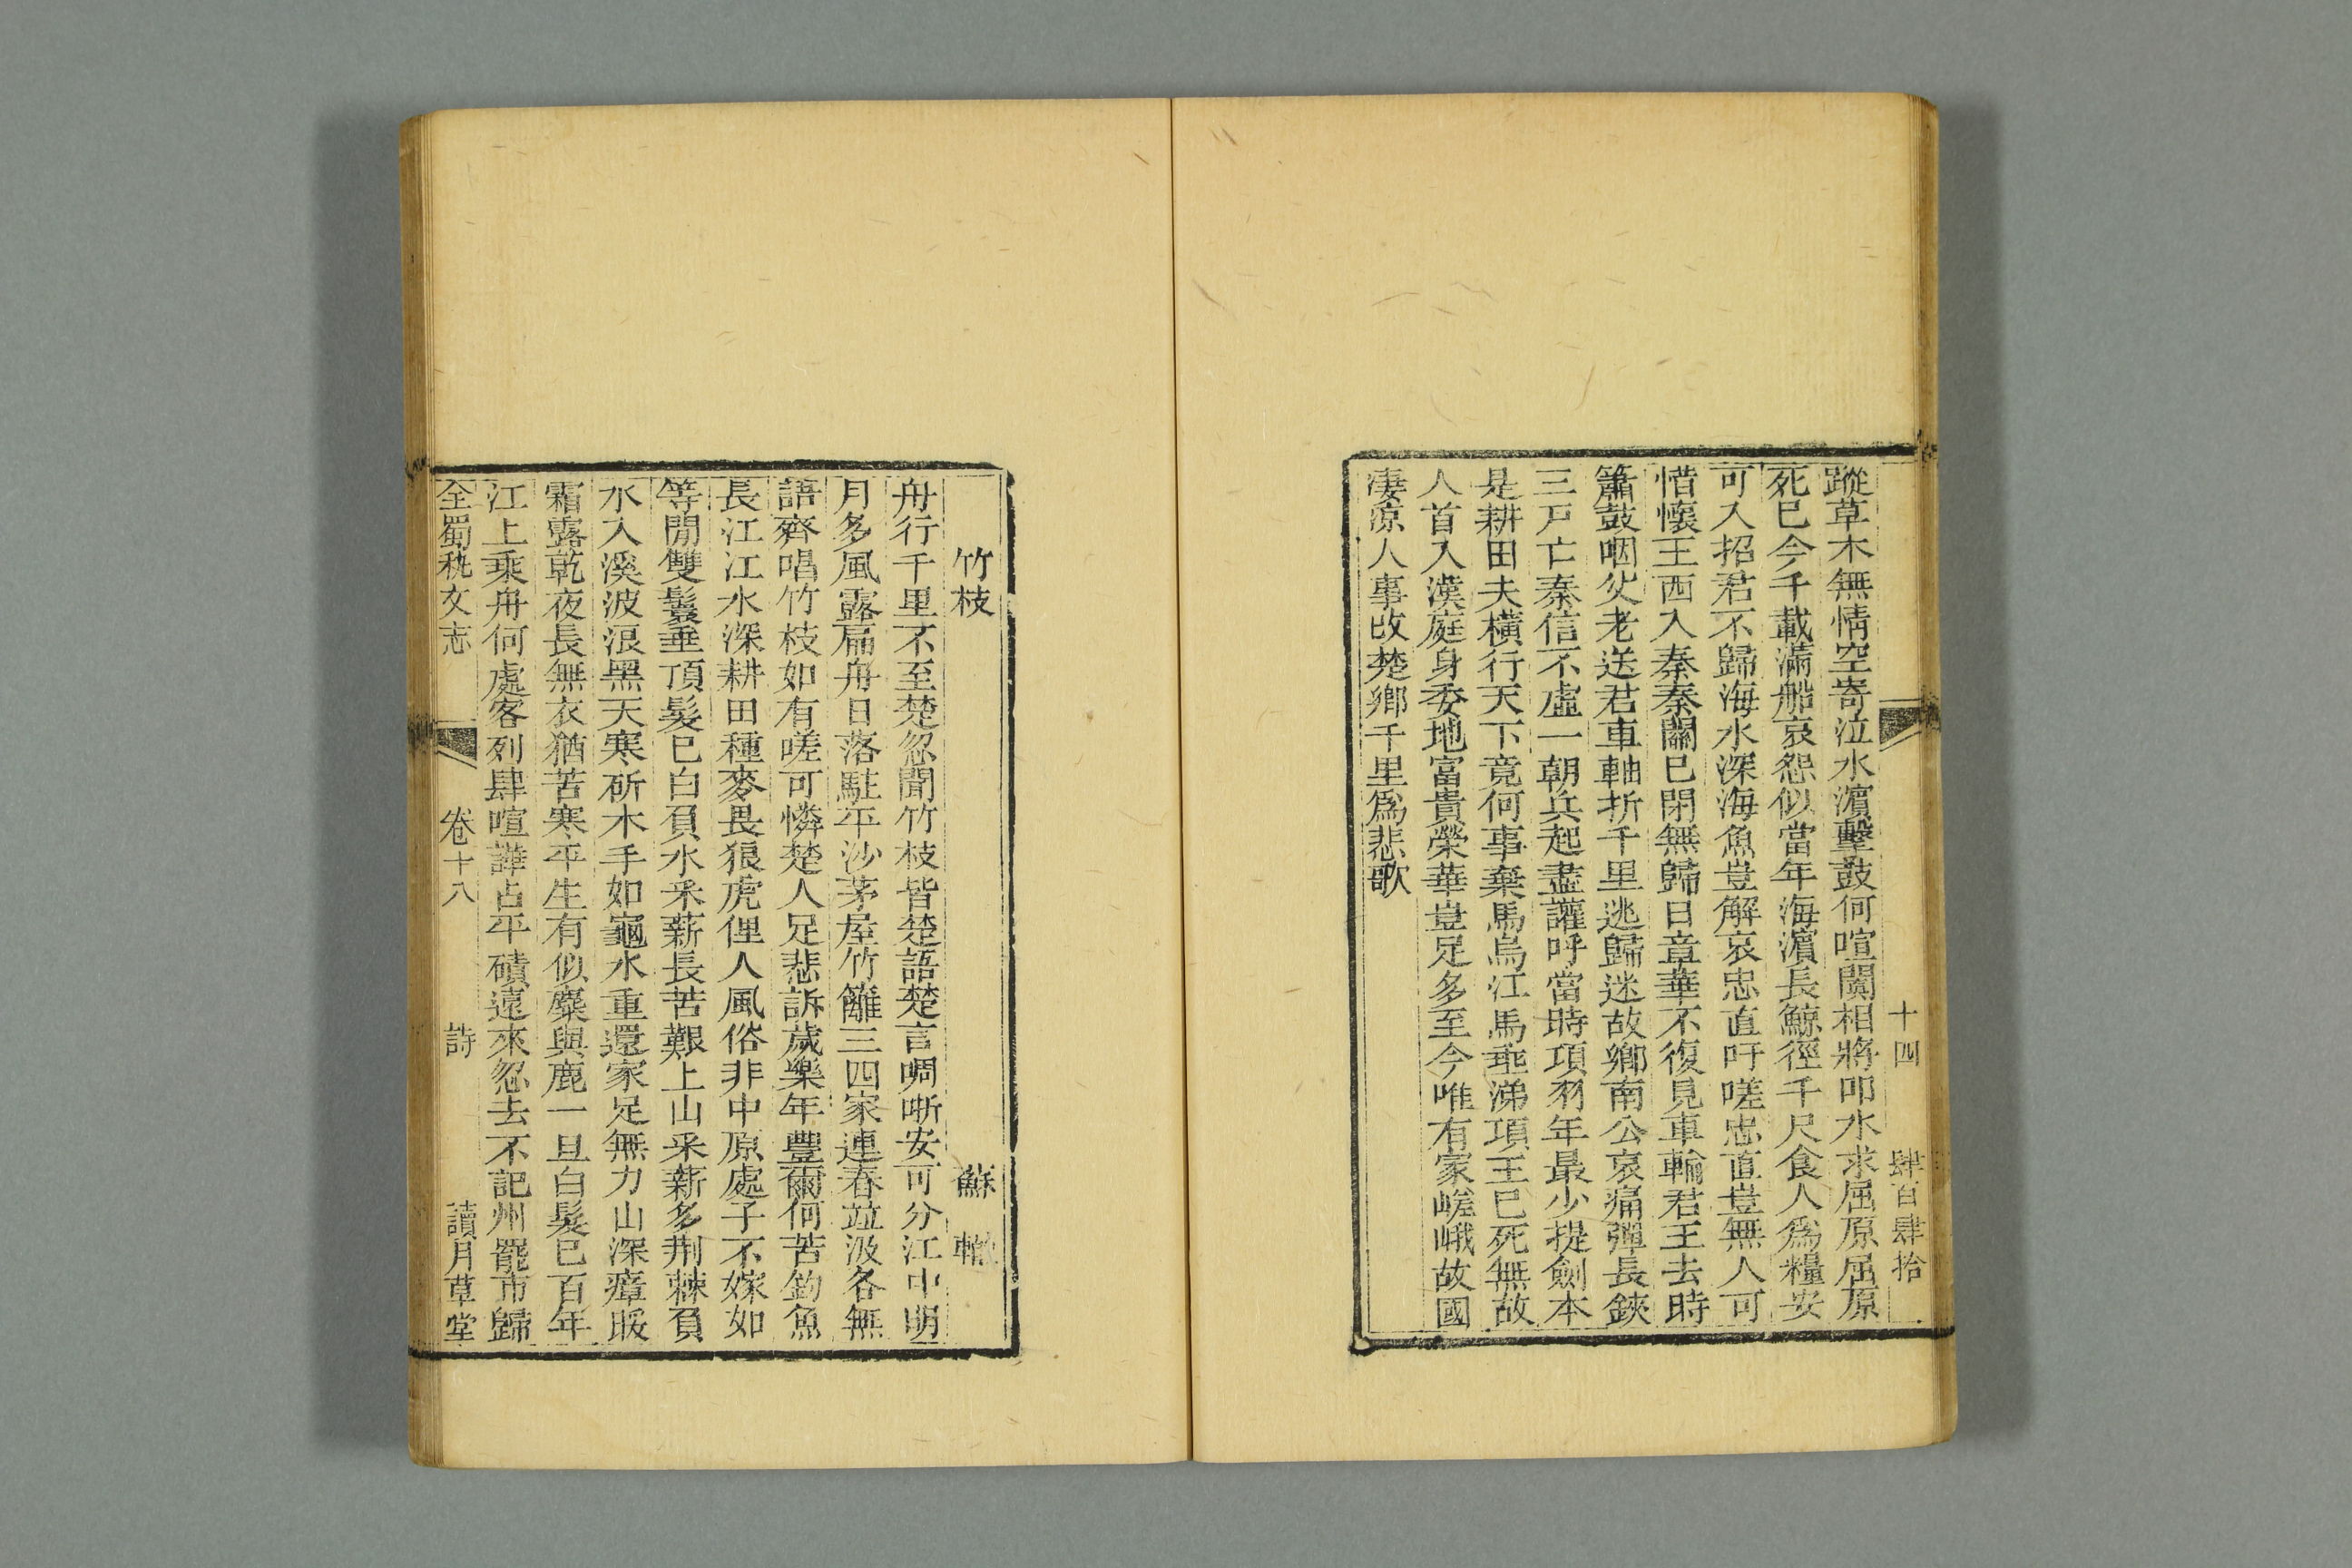 蹤草木無情空寄泣水濵擊鼓何喧闐相將叩水求屈原屈原
死已今千載滿船哀怨似當年海濵長鯨徑千尺食人爲糧安
可入招君不歸海水深海魚豈解哀忠直吁嗟忠直豈無人可
惜懷王西入秦秦關已閉無歸日章華不復見車輪君王去時
簫鼓咽父老送君車軸折千里逃歸迷故鄉南公哀痛彈長鋏
三戸亡秦信不虛一朝兵起盡讙呼當時項羽年最少提劍本
是耕田夫橫行天下竟何事棄馬烏江馬垂涕項王已死無故
人首入漢庭身委地富貴榮華豈足多至今唯有冢嵯峨故國
淒涼人事改楚鄉千里爲悲歌
十四 肆百肆拾
竹枝 蘇轍
舟行千里不至楚忽聞竹枝皆楚語楚言啁哳安可分江中明
月多風露扁舟日落駐平沙茅屋竹籬三四家連舂竝汲各無
語齊唱竹枝如有嗟可憐楚人足悲訴歲樂年豐爾何苦釣魚
長江江水深耕田種麥畏狼虎俚人風俗非中原處子不嫁如
等閒雙鬟垂頂髮已白負水采薪長苦艱上山采薪多荆棘負
水入溪波浪黑天寒斫木手如龜水重還家足無力山深瘴暖
霜露乾夜長無衣猶苦寒平生有似麋與鹿一旦白髮已百年
江上乘舟何處客列肆喧譁占平磧遠來忽去不記州罷市歸
全蜀秇文志 卷十八 詩 讀月草堂